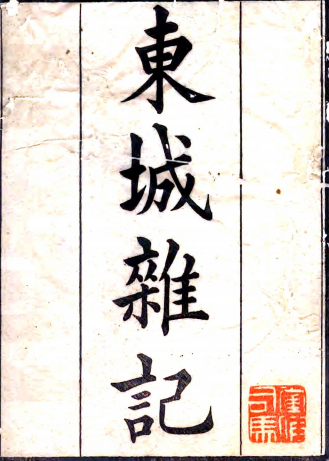 東城雜記